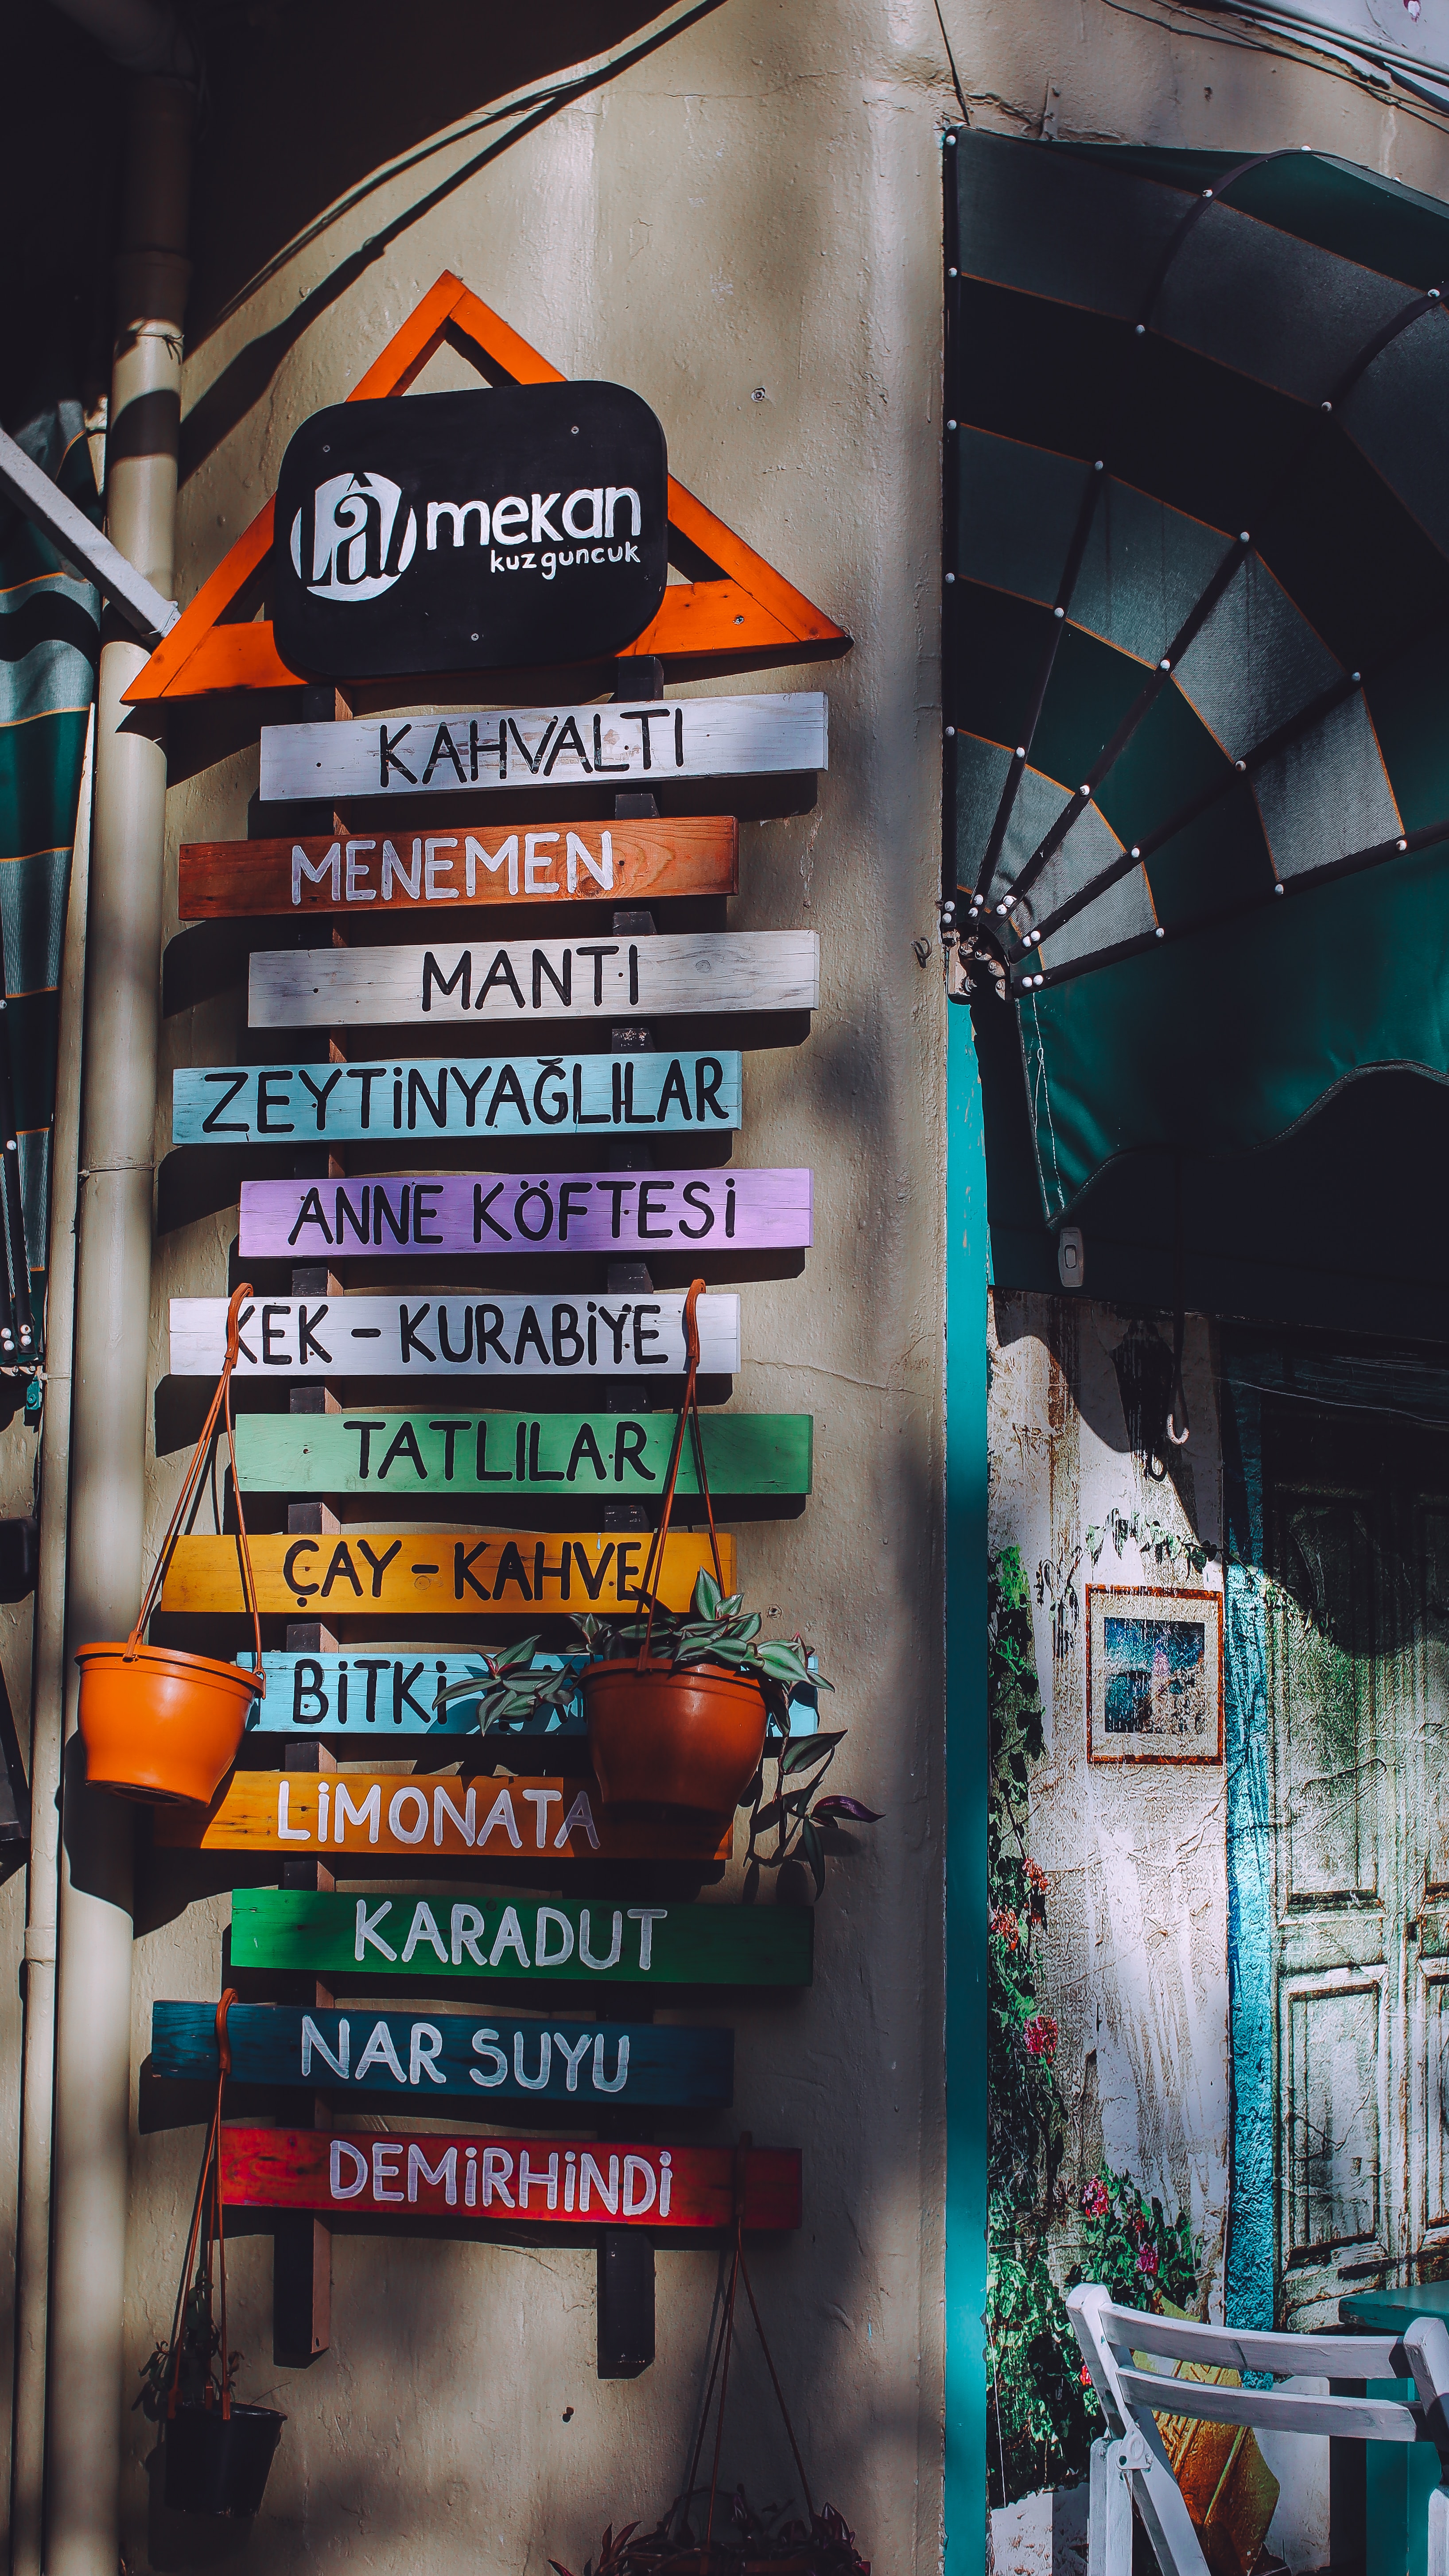 Lâl mekan
kuzguncuk
KAHVALTI
MENEMEN
MANTI
ZEYTİNYAĞLILAR
ANNE KÖFTESİ
KEK - KURABİYE
TATLILAR
ÇAY - KAHVE
BİTKİ
LİMONATA
KARADUT
NAR SUYU
DEMİRHİNDİ